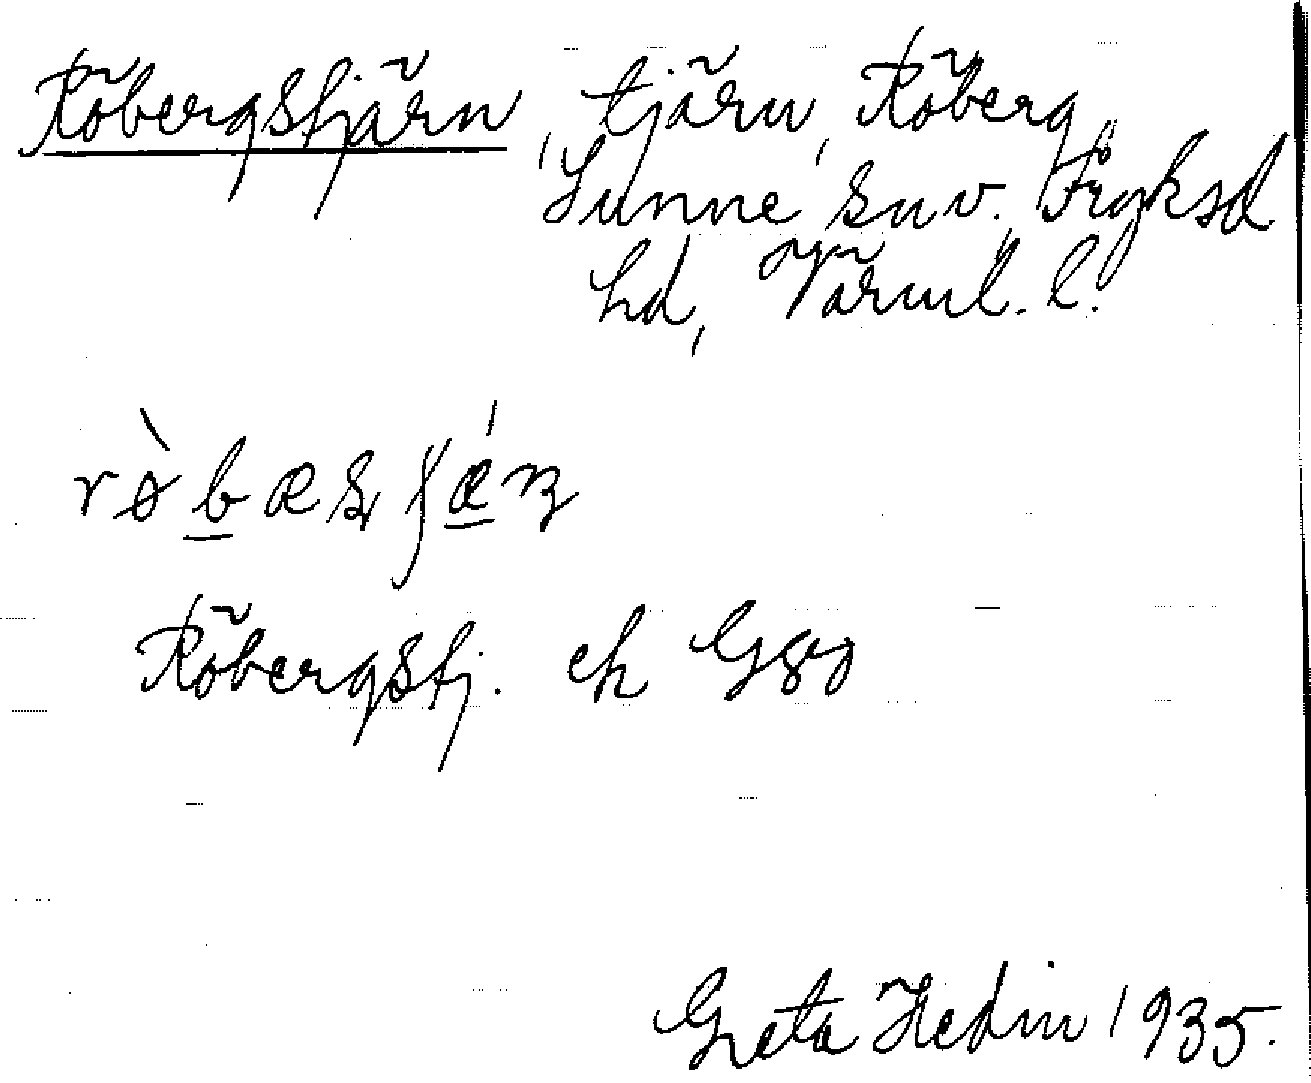 Röbergstjärn, tjärn, Röberg,
Sunne snv. Fryksd
hd, Värml. l.
Röbergstj. ek
Greta Hedin 1935.